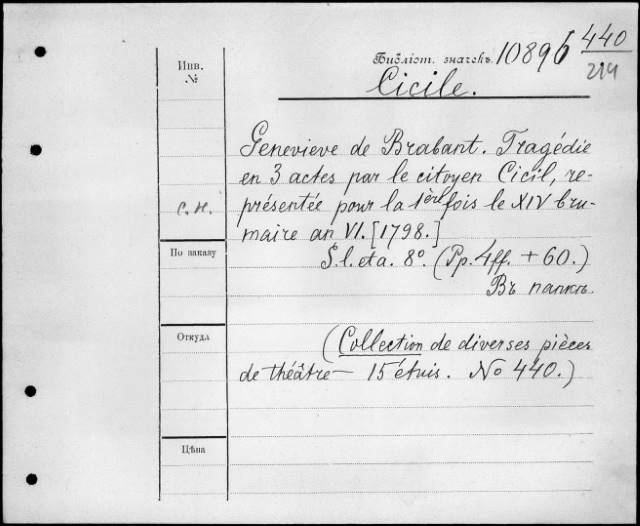 Инв.
№
Библіот. значекъ. 10896 440
214
Cicile.
Genevieve de Brabant. Tragédie
en 3 actes par le citoyen Cicil, re-
présentée pour la 1ère fois le XIV bru-
maire an VI. [1798.]
С. н.
S. l. et a. 8º. (Pp. 4ff. + 60.)
Въ папкѣ.
По заказу
Откуда
(Collection de diverses pièces
de théâtre — 15 étuis. No 440.)
Цѣна